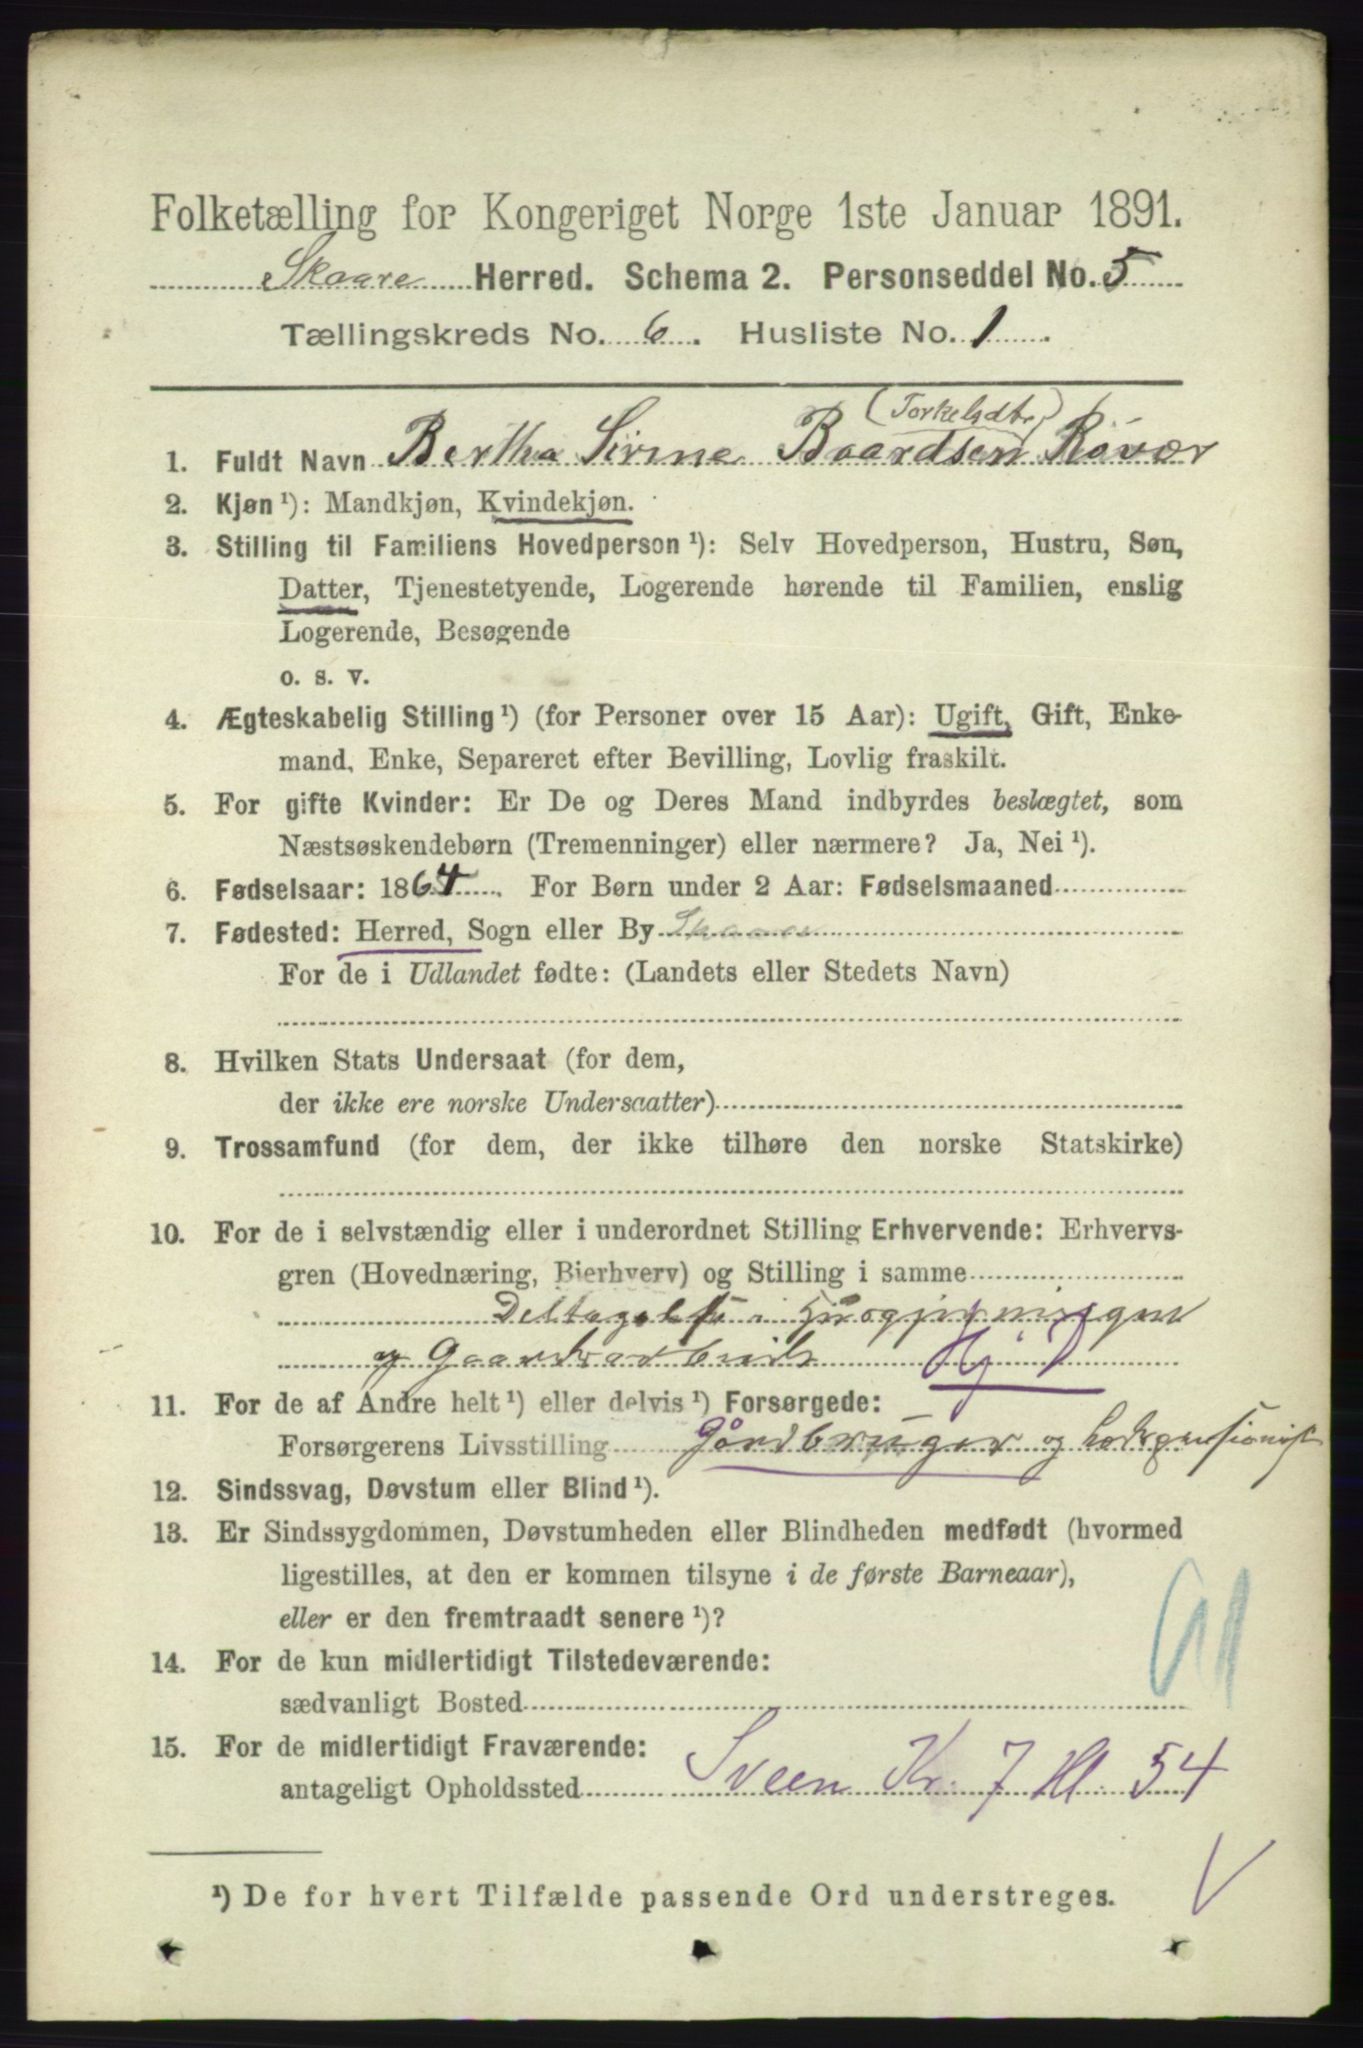 Folketælling for Kongeriget Norge 1ste Januar 1891.
Skaare Herred. Schema 2. Personseddel No. 5
Tællingskreds No. 6. Husliste No. 1.
(Torkelsdtr.)
1. Fuldt Navn Bertha Sirine Baardsen Røvær
2. Kjøn ¹): Mandkjøn, Kvindekjøn.
3. Stilling til Familiens Hovedperson ¹): Selv Hovedperson, Hustru, Søn,
Datter, Tjenestetyende, Logerende hørende til Familien, enslig
Logerende, Besøgende
o. s. v.
4. Ægteskabelig Stilling ¹) (for Personer over 15 Aar): Ugift, Gift, Enke-
mand, Enke, Separeret efter Bevilling, Lovlig fraskilt.
5. For gifte Kvinder: Er De og Deres Mand indbyrdes beslægtet, som
Næstsøskendebørn (Tremenninger) eller nærmere? Ja, Nei ¹).
6. Fødselsaar: 1864. For Børn under 2 Aar: Fødselsmaaned
7. Fødested: Herred, Sogn eller By Skaare
For de i Udlandet fødte: (Landets eller Stedets Navn)
8. Hvilken Stats Undersaat (for dem,
der ikke ere norske Undersaatter)
9. Trossamfund (for dem, der ikke tilhøre den norske Statskirke)
10. For de i selvstændig eller i underordnet Stilling Erhvervende: Erhvervs-
gren (Hovednæring, Bierhverv) og Stilling i samme
Deltagelse i Husgjerningen
og Gaardsarbeide Hj D
11. For de af Andre helt ¹) eller delvis ¹) Forsørgede:
Forsørgerens Livsstilling Gårdbruger og Lodspensionist
12. Sindssvag, Døvstum eller Blind ¹).
13. Er Sindssygdommen, Døvstumheden eller Blindheden medfødt (hvormed
ligestilles, at den er kommen tilsyne i de første Barneaar),
eller er den fremtraadt senere ¹)?
14. For de kun midlertidigt Tilstedeværende:
sædvanligt Bosted
15. For de midlertidigt Fraværende:
antageligt Opholdssted Sveen Kr. 7 Hl. 54
¹) De for hvert Tilfælde passende Ord understreges.